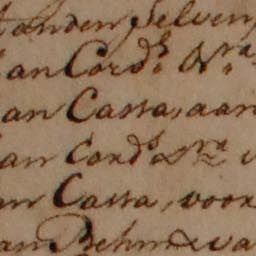 tanden selven
an Cord.s N.ra
an Cassa, aan
an Cord.s N.ra
an Cassa, voor
an Behm & va